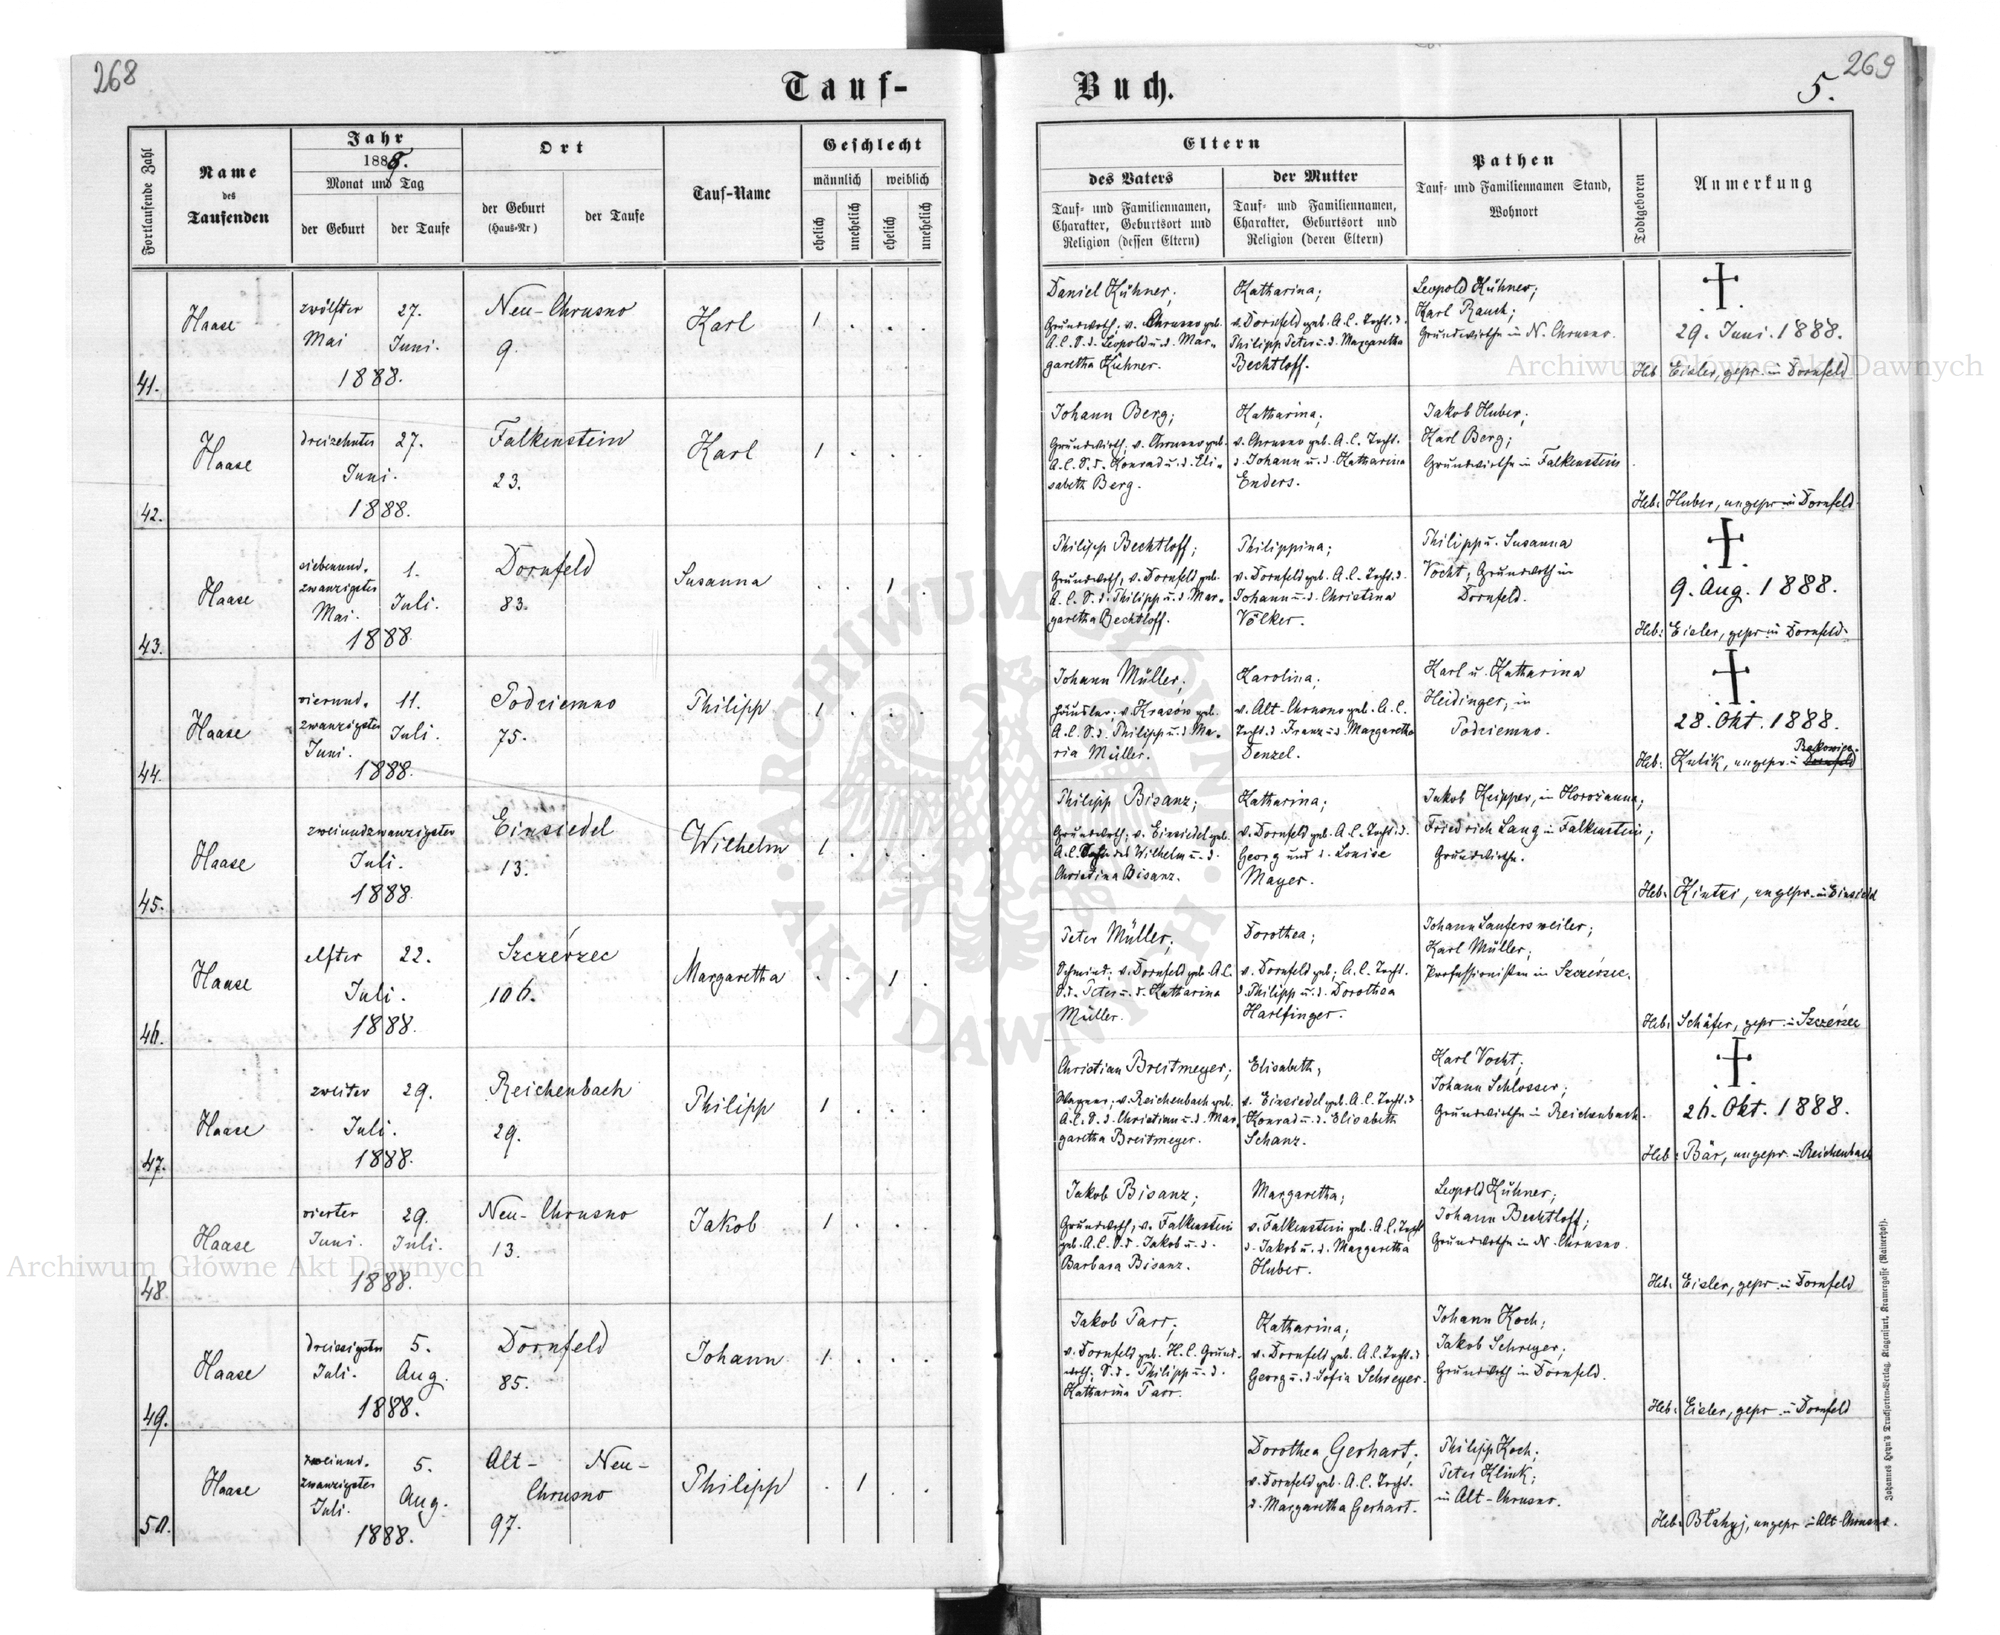 268
Tauf-
Fortlaufende Zahl
Name
des
Taufenden
Jahr
1888.
Monat und Tag
der Geburt
der Taufe
Ort
der Geburt
(Haus-Nr)
der Taufe
Tauf-Name
Geschlecht
männlich
weiblich
ehelich
unehelich
ehelich
unehelich
41.
Haase
zwölfter
Mai
27.
Juni.
1888.
Neu-Chrusno
9.
Karl
1 . . .
42.
Haase
dreizehnter
27.
Juni.
1888.
Falkenstein
23.
Karl
1 . . .
43.
Haase
siebenund-
zwanzigster
Mai.
1.
Juli.
1888.
Dornfeld
83.
Susanna
. . 1 .
44.
Haase
vierund-
zwanzigster
Juni.
11.
Juli.
1888.
Podciemno
75.
Philipp
1 . . .
45.
Haase
zweiundzwanzigster
Juli.
1888.
Einsiedel
13.
Wilhelm
1 . . .
46.
Haase
elfter
22.
Juli.
1888.
Szczérzec
106.
Margaretha
. . 1 .
47.
Haase
zweiter
29.
Juli.
1888.
Reichenbach
29.
Philipp
1 . . .
48.
Haase
vierter
Juni.
29.
Juli.
1888.
Neu-Chrusno
13.
Jakob
1 . . .
49.
Haase
dreissigster
Juli.
5.
Aug.
1888.
Dornfeld
85.
Johann
1 . . .
50.
Haase
zweiund-
zwanzigster
Juli.
5.
Aug.
1888.
Alt- Neu-
Chrusno
97.
Philipp
. 1 . .
269
5.
Buch.
Eltern
des Vaters
Tauf- und Familiennamen,
Charakter, Geburtsort und
Religion (dessen Eltern)
der Mutter
Tauf- und Familiennamen,
Charakter, Geburtsort und
Religion (deren Eltern)
Pathen
Tauf- und Familiennamen Stand,
Wohnort
Todtgeboren
Anmerkung
Daniel Kühner;
Grundwrth; v. Chrusno geb.
A.C. S.d. Leopold u.d. Mar-
garetha Kühner.
Katharina;
v. Dornfeld geb. A.C. Tocht. d.
Philipp Peter u.d. Margaretha
Bechtloff.
Leopold Kühner;
Karl Rauch;
Grundwirthe in N. Chrusno.
29. Juni. 1888.
Heb: Eisler, gepr. in Dornfeld
Johann Berg;
Grundwirth; v. Chrusno geb.
A.C. S.d. Konrad u.d. Eli-
sabeth Berg.
Katharina;
v. Chrusno geb. A.C. Tocht.
d. Johann u.d. Katharina
Enders.
Jakob Huber;
Karl Berg;
Grundwirthe in Falkenstein
Heb: Huber, ungepr. in Dornfeld
Philipp Bechtloff;
Grundwrth, v. Dornfeld geb.
A.C. S.d. Philipp u.d. Mar-
garetha Bechtloff.
Philippina;
v. Dornfeld geb. A.C. Tocht. d.
Johann u.d. Christina
Völker.
Philipp u. Susanna
Vocht; Grundwrth in
Dornfeld.
9. Aug. 1888.
Heb: Eisler, gepr in Dornfeld.
Johann Müller;
Häusler; v. Krasów geb.
A.C. S.d. Philipp u.d. Ma-
ria Müller.
Karolina;
v. Alt-Chrusno geb. A.C.
Tocht. d. Franz u.d. Margaretha
Denzel.
Karl u. Katharina
Heidinger, in
Podciemno.
28. Okt. 1888.
Heb: Kulik, ungepr. in Dornfeld
Philipp Bisanz;
Grundwrth; v. Einsiedel geb.
A.C. Sohn des Wilhelm u.d.
Christina Bisanz.
Katharina;
v. Dornfeld geb. A.C. Tocht. d.
Georg und d. Louise
Mayer.
Jakob Keipper, in Horożanna;
Friedrich Lang in Falkenstein;
Grundwirthe.
Heb: Kintzi, ungepr. in Einsiedel
Peter Müller;
Schmied; v. Dornfeld geb. A.C.
S.d. Peter u.d. Katharina
Müller.
Dorothea;
v. Dornfeld geb; A.C. Tocht.
d. Philipp u.d. Dorothea
Harlfinger.
Johann Laufersweiler;
Karl Müller;
Professionisten in Szczérzec.
Heb: Schäfer, gepr. in Szczérzec
Christian Breitmeyer;
Wagner; v. Reichenbach geb.
A.C. S.d. Christian u.d. Mar-
garetha Breitmeyer.
Elisabeth,
v. Einsiedel geb. A.C. Tocht. d
Konrad u.d. Elisabeth
Schanz.
Karl Vocht;
Johann Schlosser;
Grundwirthe in Reichenbach.
26. Okt. 1888.
Heb: Bär, ungepr. in Reichenbach
Jakob Bisanz;
Grundwrth, v. Falkenstein
geb. A.C. S.d. Jakob u.d.
Barbara Bisanz.
Margaretha;
v. Falkenstein geb. A.C. Tocht
d. Jakob u.d. Margaretha
Huber.
Leopold Kühner;
Johann Bechtloff;
Grundwrthe in N. Chrusno.
Heb: Eisler, gepr in Dornfeld
Jakob Parr;
v. Dornfeld geb. H.C. Grund-
wrth; S.d. Philipp u.d.
Katharina Parr.
Katharina;
v. Dornfeld geb. A.C. Tocht. d
Georg u.d. Sofia Schreyer.
Johann Koch;
Jakob Schreyer;
Grundwrth in Dornfeld.
Heb: Eisler, gepr. in Dornfeld
Dorothea Gerhart;
v. Dornfeld geb. A.C. Tocht.
d. Margaretha Gerhart.
Philipp Koch;
Peter Klink;
in Alt-Chrusno.
Heb: Błahyj, ungepr in Alt Chrusno.
Johannes Heyn's Drucksorten-Verlag, Klagenfurt, Kramergasse (Rainerhof).
Archiwum Główne Akt Dawnych
Archiwum Główne Akt Dawnych
ARCHIWUM GŁÓWNE · AKT DAWNYCH ·